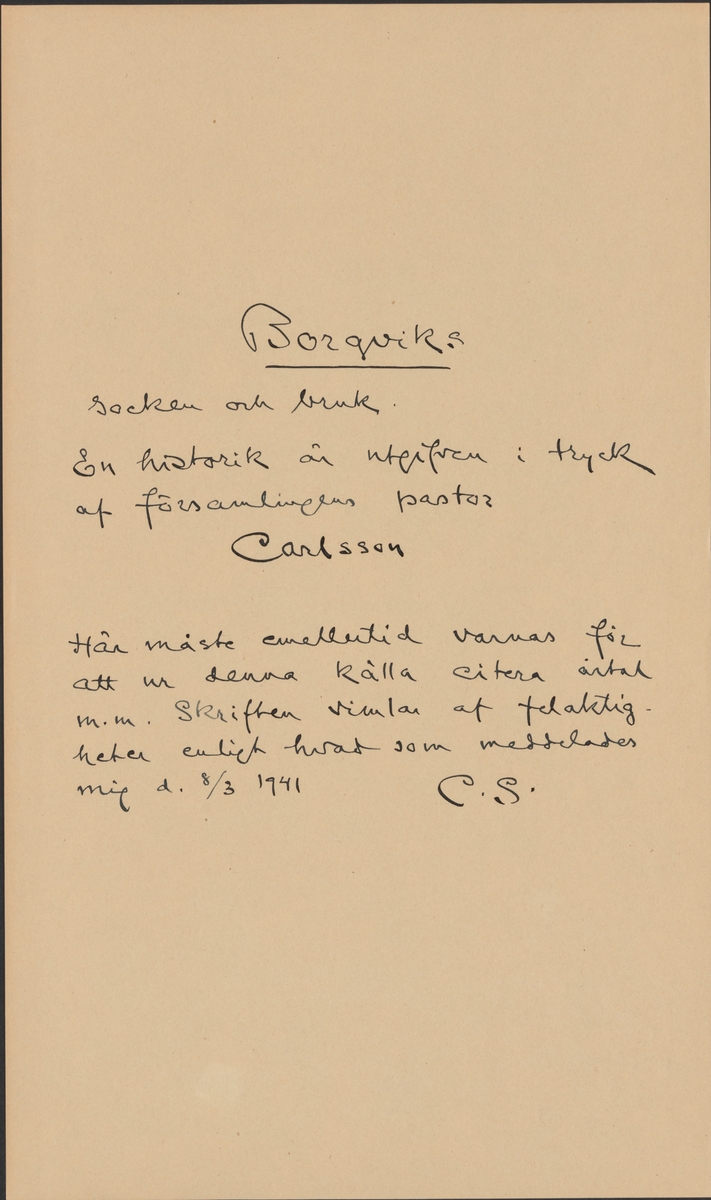 Borgviks
socken och bruk.
En historik är utgifven i tryck
af församlingens pastor
Carlsson
Här måste emellertid varnas för
att ur denna källa citera årtal
m.m. Skriften vimlar af felaktig-
heter enligt hvad som meddelades
mig d. 8/3 1941 C.S.